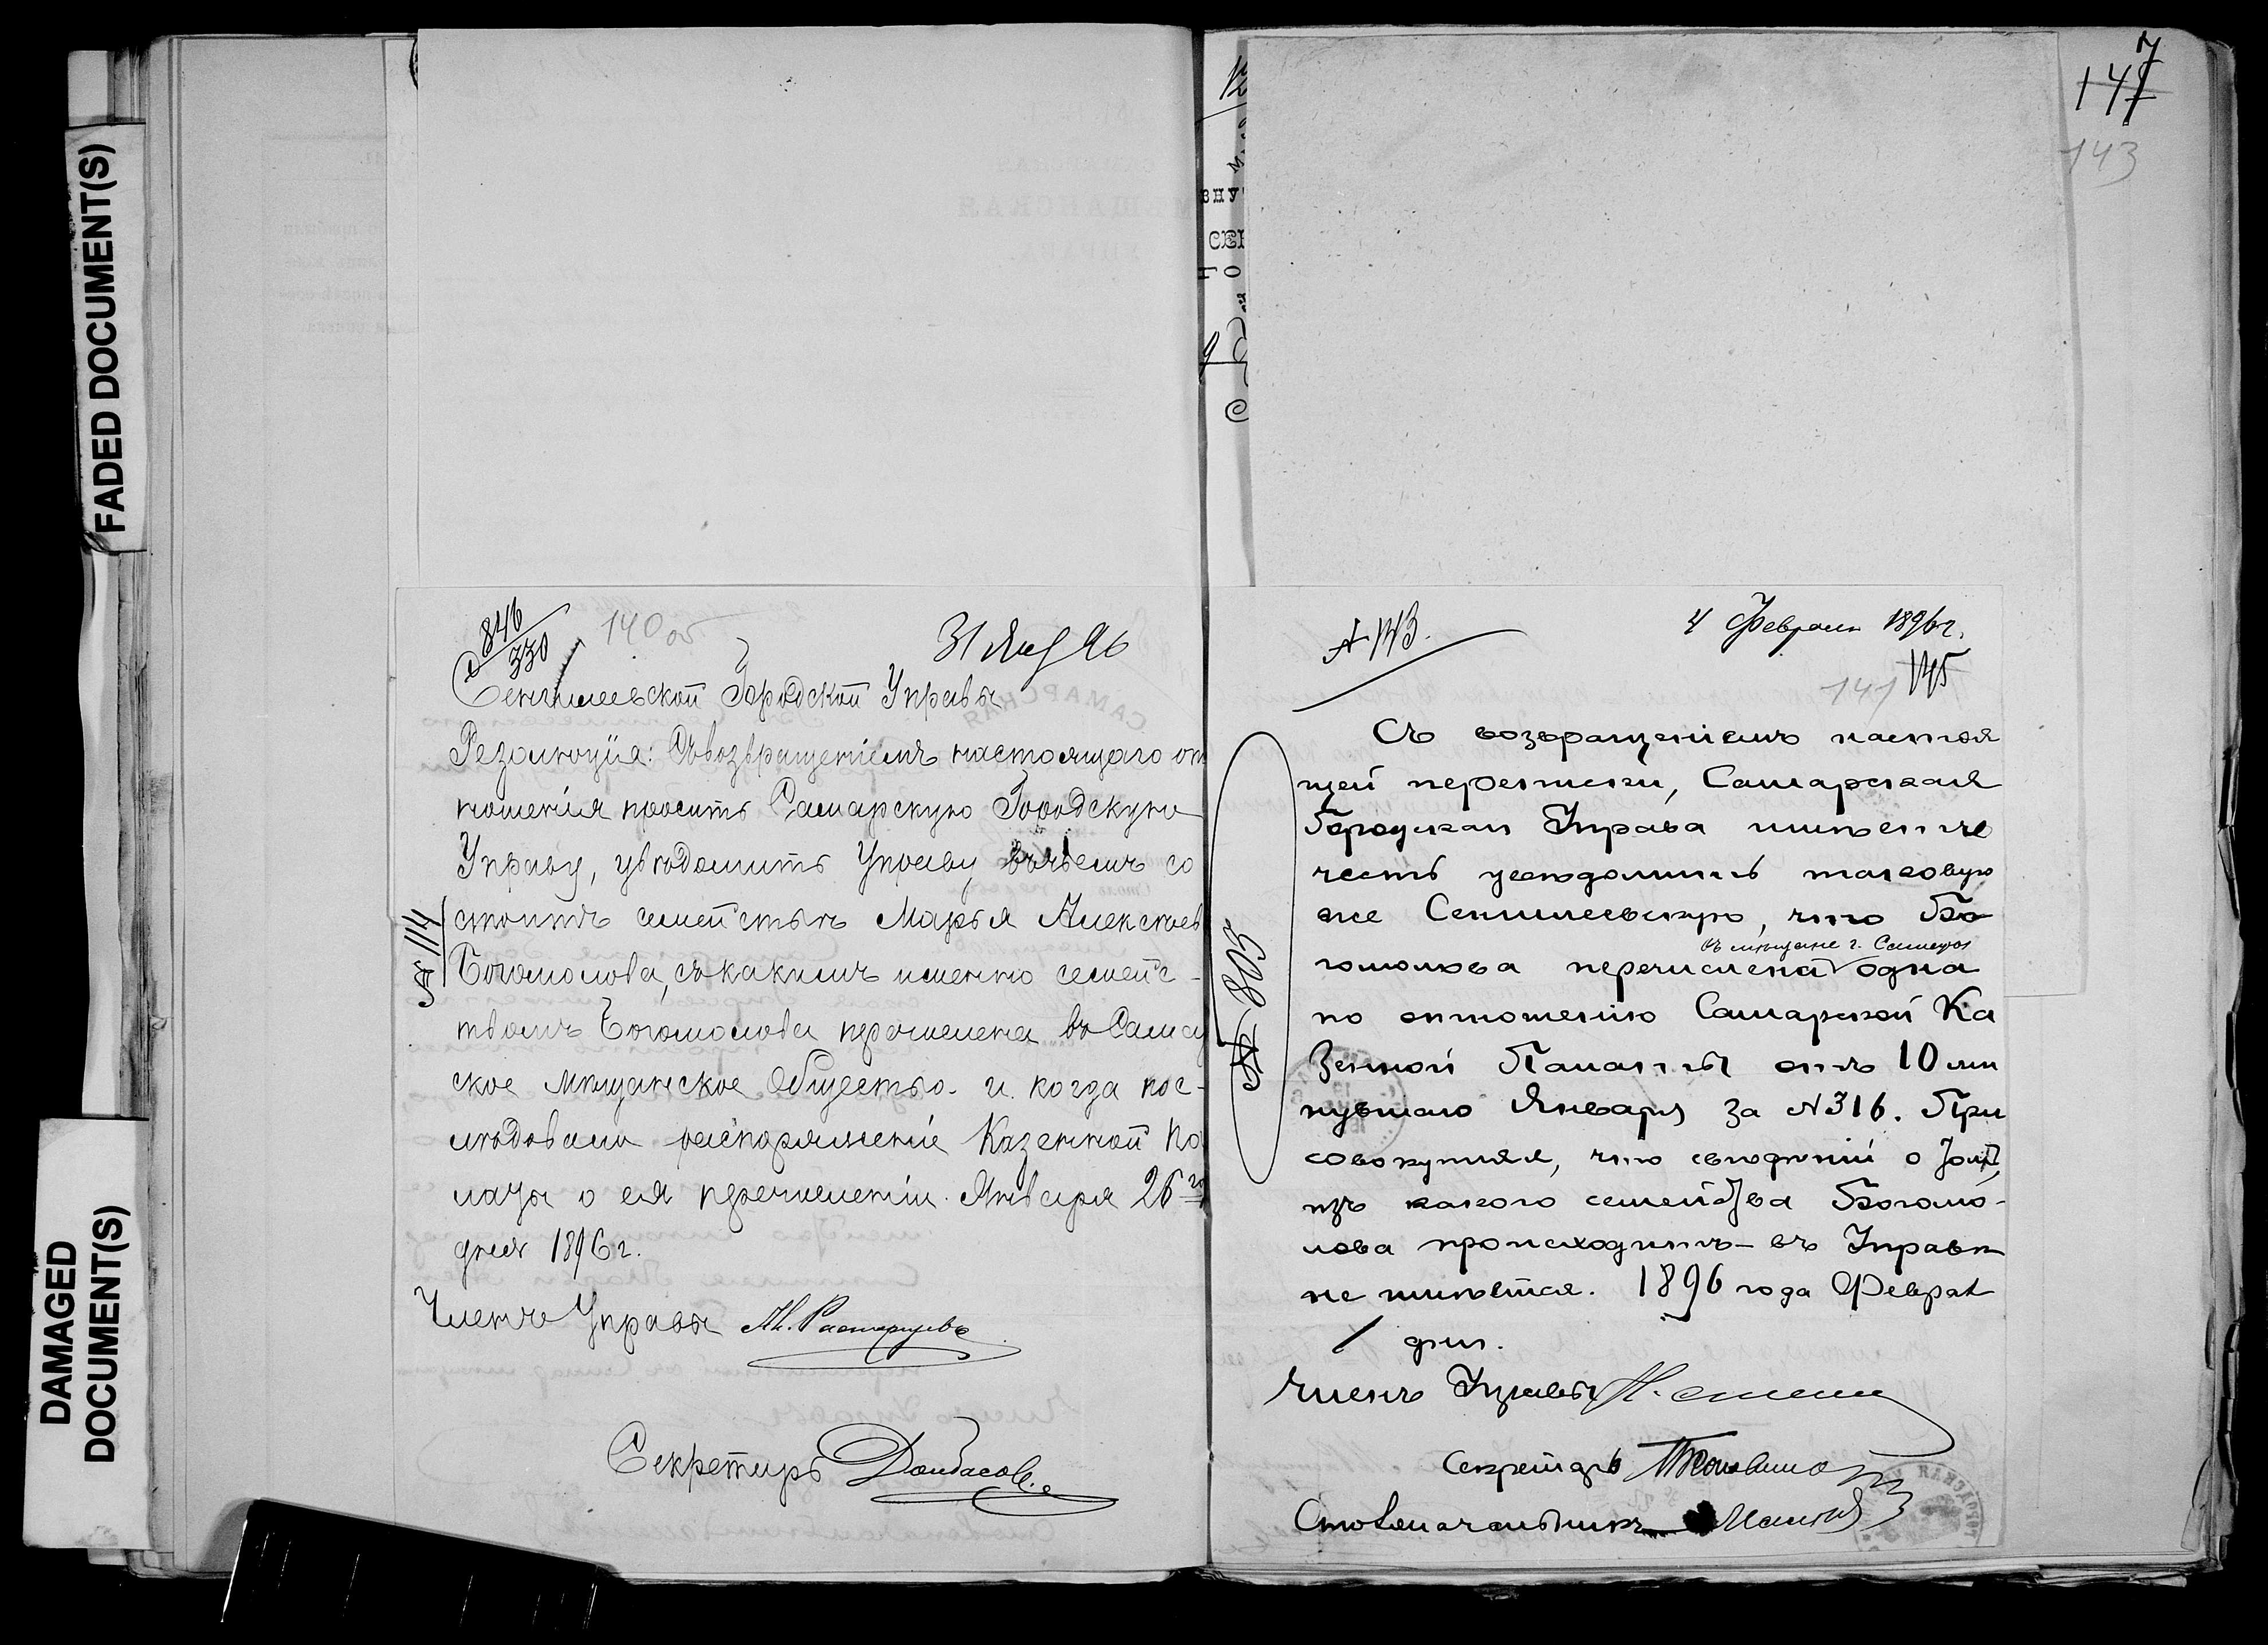 FADED DOCUMENT(S)
DAMAGED
DOCUMENT(S)
846
330
140 об
31 Янв 96
Сенгилеевской Городской Управы
Резолюція: Съ возвращеніемъ настоящаго от
ношенія просить Самарскую Городскую
Управу, увѣдомить Управу въ чьемъ со
стоитъ семействѣ Марья Алексѣев
Богомолова, съ какимъ именно семейс-
твомъ Богомолова перечислена въ Самар
ское Мѣщанское Общество. и когда пос-
лѣдовало распоряженіе Казенной Па
латы о ея перечисленіи. Января 26 го
дня 1896 г.
№ 114
Членъ Управы
Секретарь
147
143
№ 143.
4 Февраля 1896 г.
141
145
Съ возвращеніемъ настоя
щей переписки, Самарская
Городская Управа имѣетъ
честь увѣдомить таковую
же Сенгилеевскую, что Бо
въ мѣщане г. Самары
гомолова перечислена одна
по отношенію Самарской Ка
зенной Палаты отъ 10 ми
нувшаго Января за № 316. При
совокупляя, что свѣдѣній о томъ,
изъ какого семейства Богомо-
лова происходитъ - въ Управѣ
не имѣется. 1896 года Феврал
1 дня.
№ 805
Членъ Управы
Секретарь
Столоначальникъ